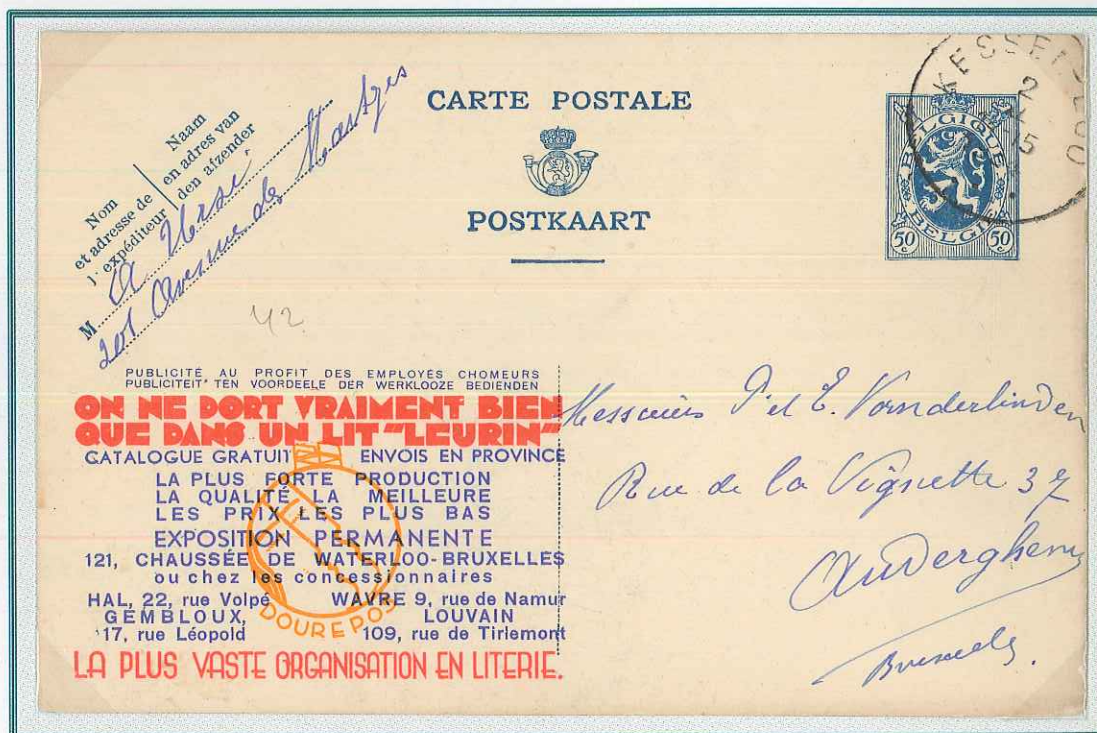 CARTE POSTALE
POSTKAART
Nom
et adresse de
l'expéditeur
Naam
en adres van
den afzender
M A
201 Avenue des
42
BELGIQUE
BELGIE
50 c 50 c
2
15
PUBLICITÉ AU PROFIT DES EMPLOYÉS CHOMEURS
PUBLICITEIT TEN VOORDEELE DER WERKLOOZE BEDIENDEN
ON NE DORT VRAIMENT BIEN
QUE DANS UN LIT "LEURIN"
CATALOGUE GRATUIT ENVOIS EN PROVINCE
LA PLUS FORTE PRODUCTION
LA QUALITÉ LA MEILLEURE
LES PRIX LES PLUS BAS
EXPOSITION PERMANENTE
121, CHAUSSÉE DE WATERLOO-BRUXELLES
ou chez les concessionnaires
HAL, 22, rue Volpé WAVRE 9, rue de Namur
GEMBLOUX, LOUVAIN
17, rue Léopold 109, rue de Tirlemont
DOUREPOS
LA PLUS VASTE ORGANISATION EN LITERIE.
Messieurs P. et E. Vanderlinden
Rue de la Vignette 37
Auderghem
Bruxelles.